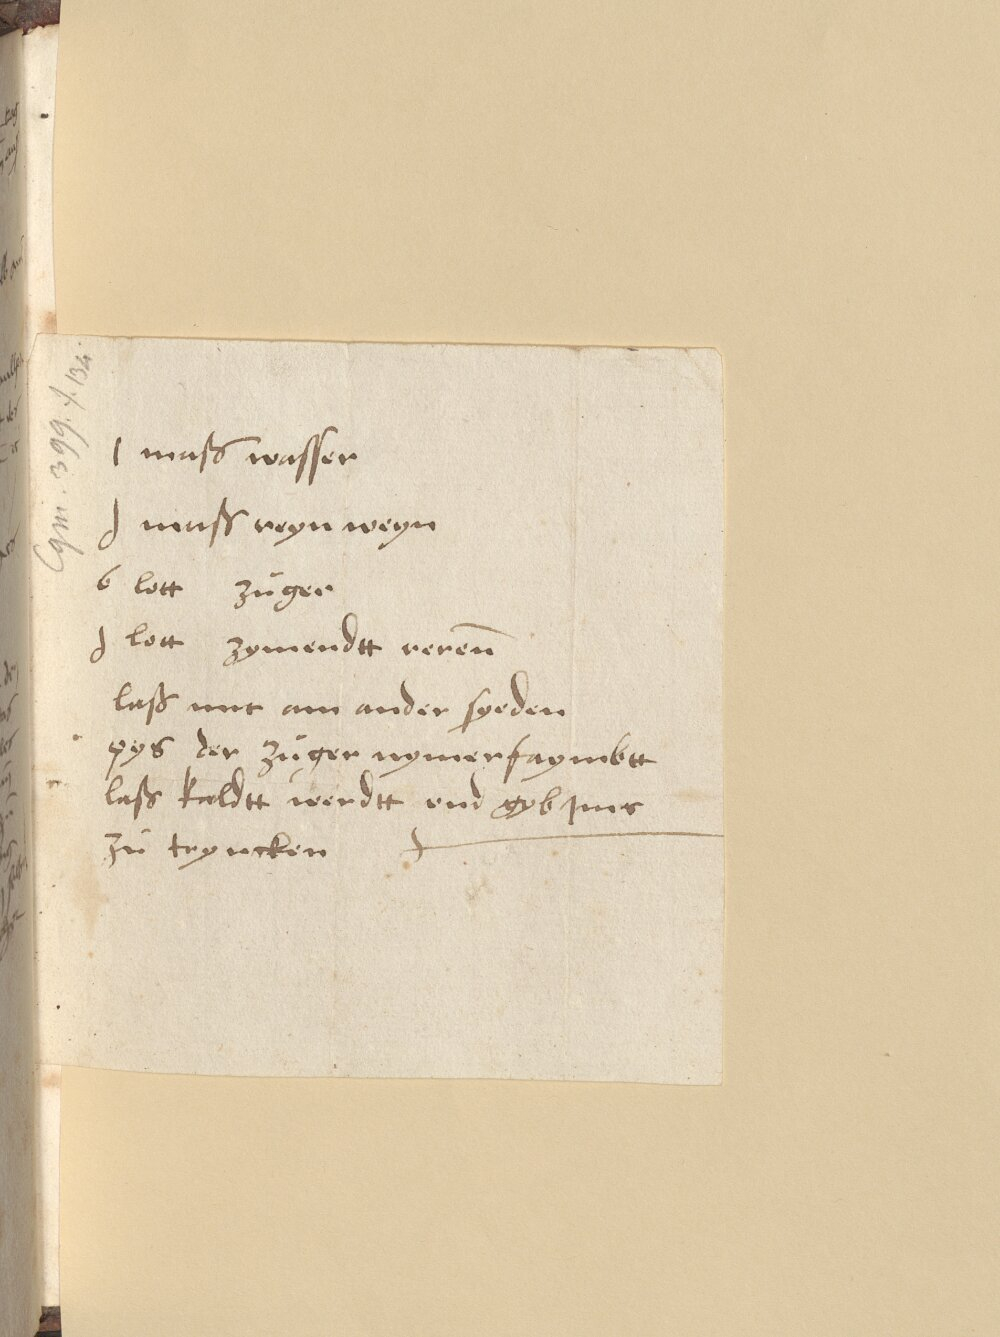 Cgm. 399. f. 134.
1 maß wasser
J maß reyn weyn
6 lott zuger
J lott zymendtt reren̄
laß mit am ander syeden
pys der zuger nymer faymbtt
laß kaldtt werdtt vnd gyb jms
zu tryncken